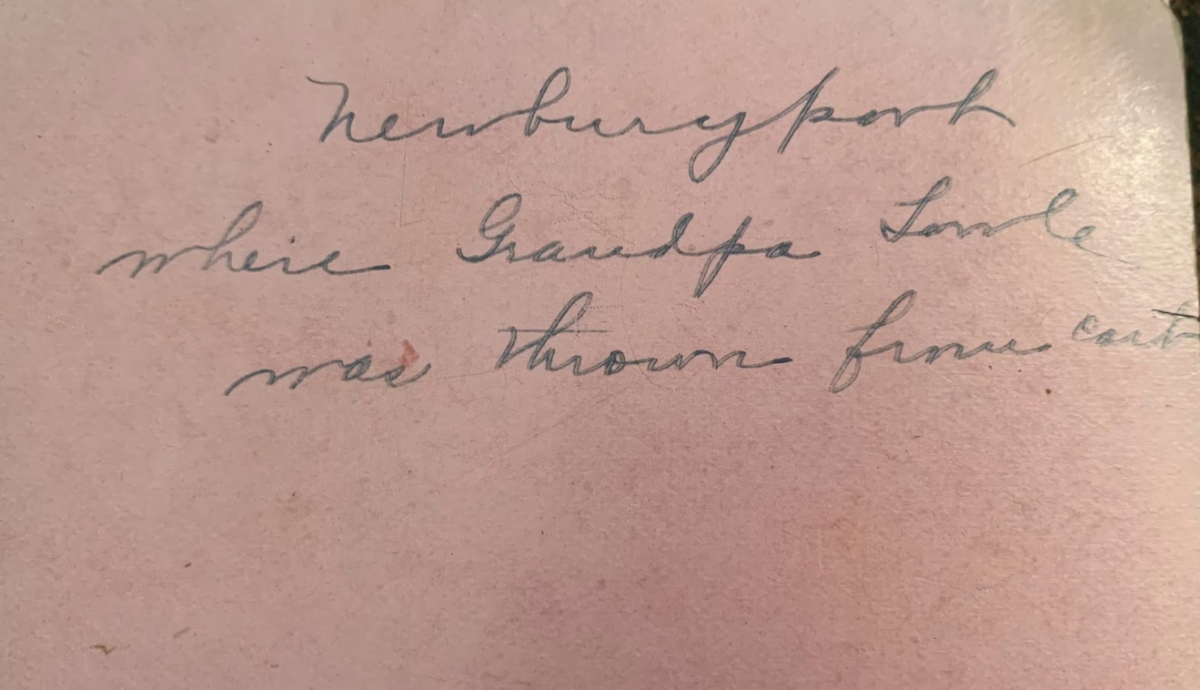 Newburyport
where Grandpa Sowle
was thrown from cart